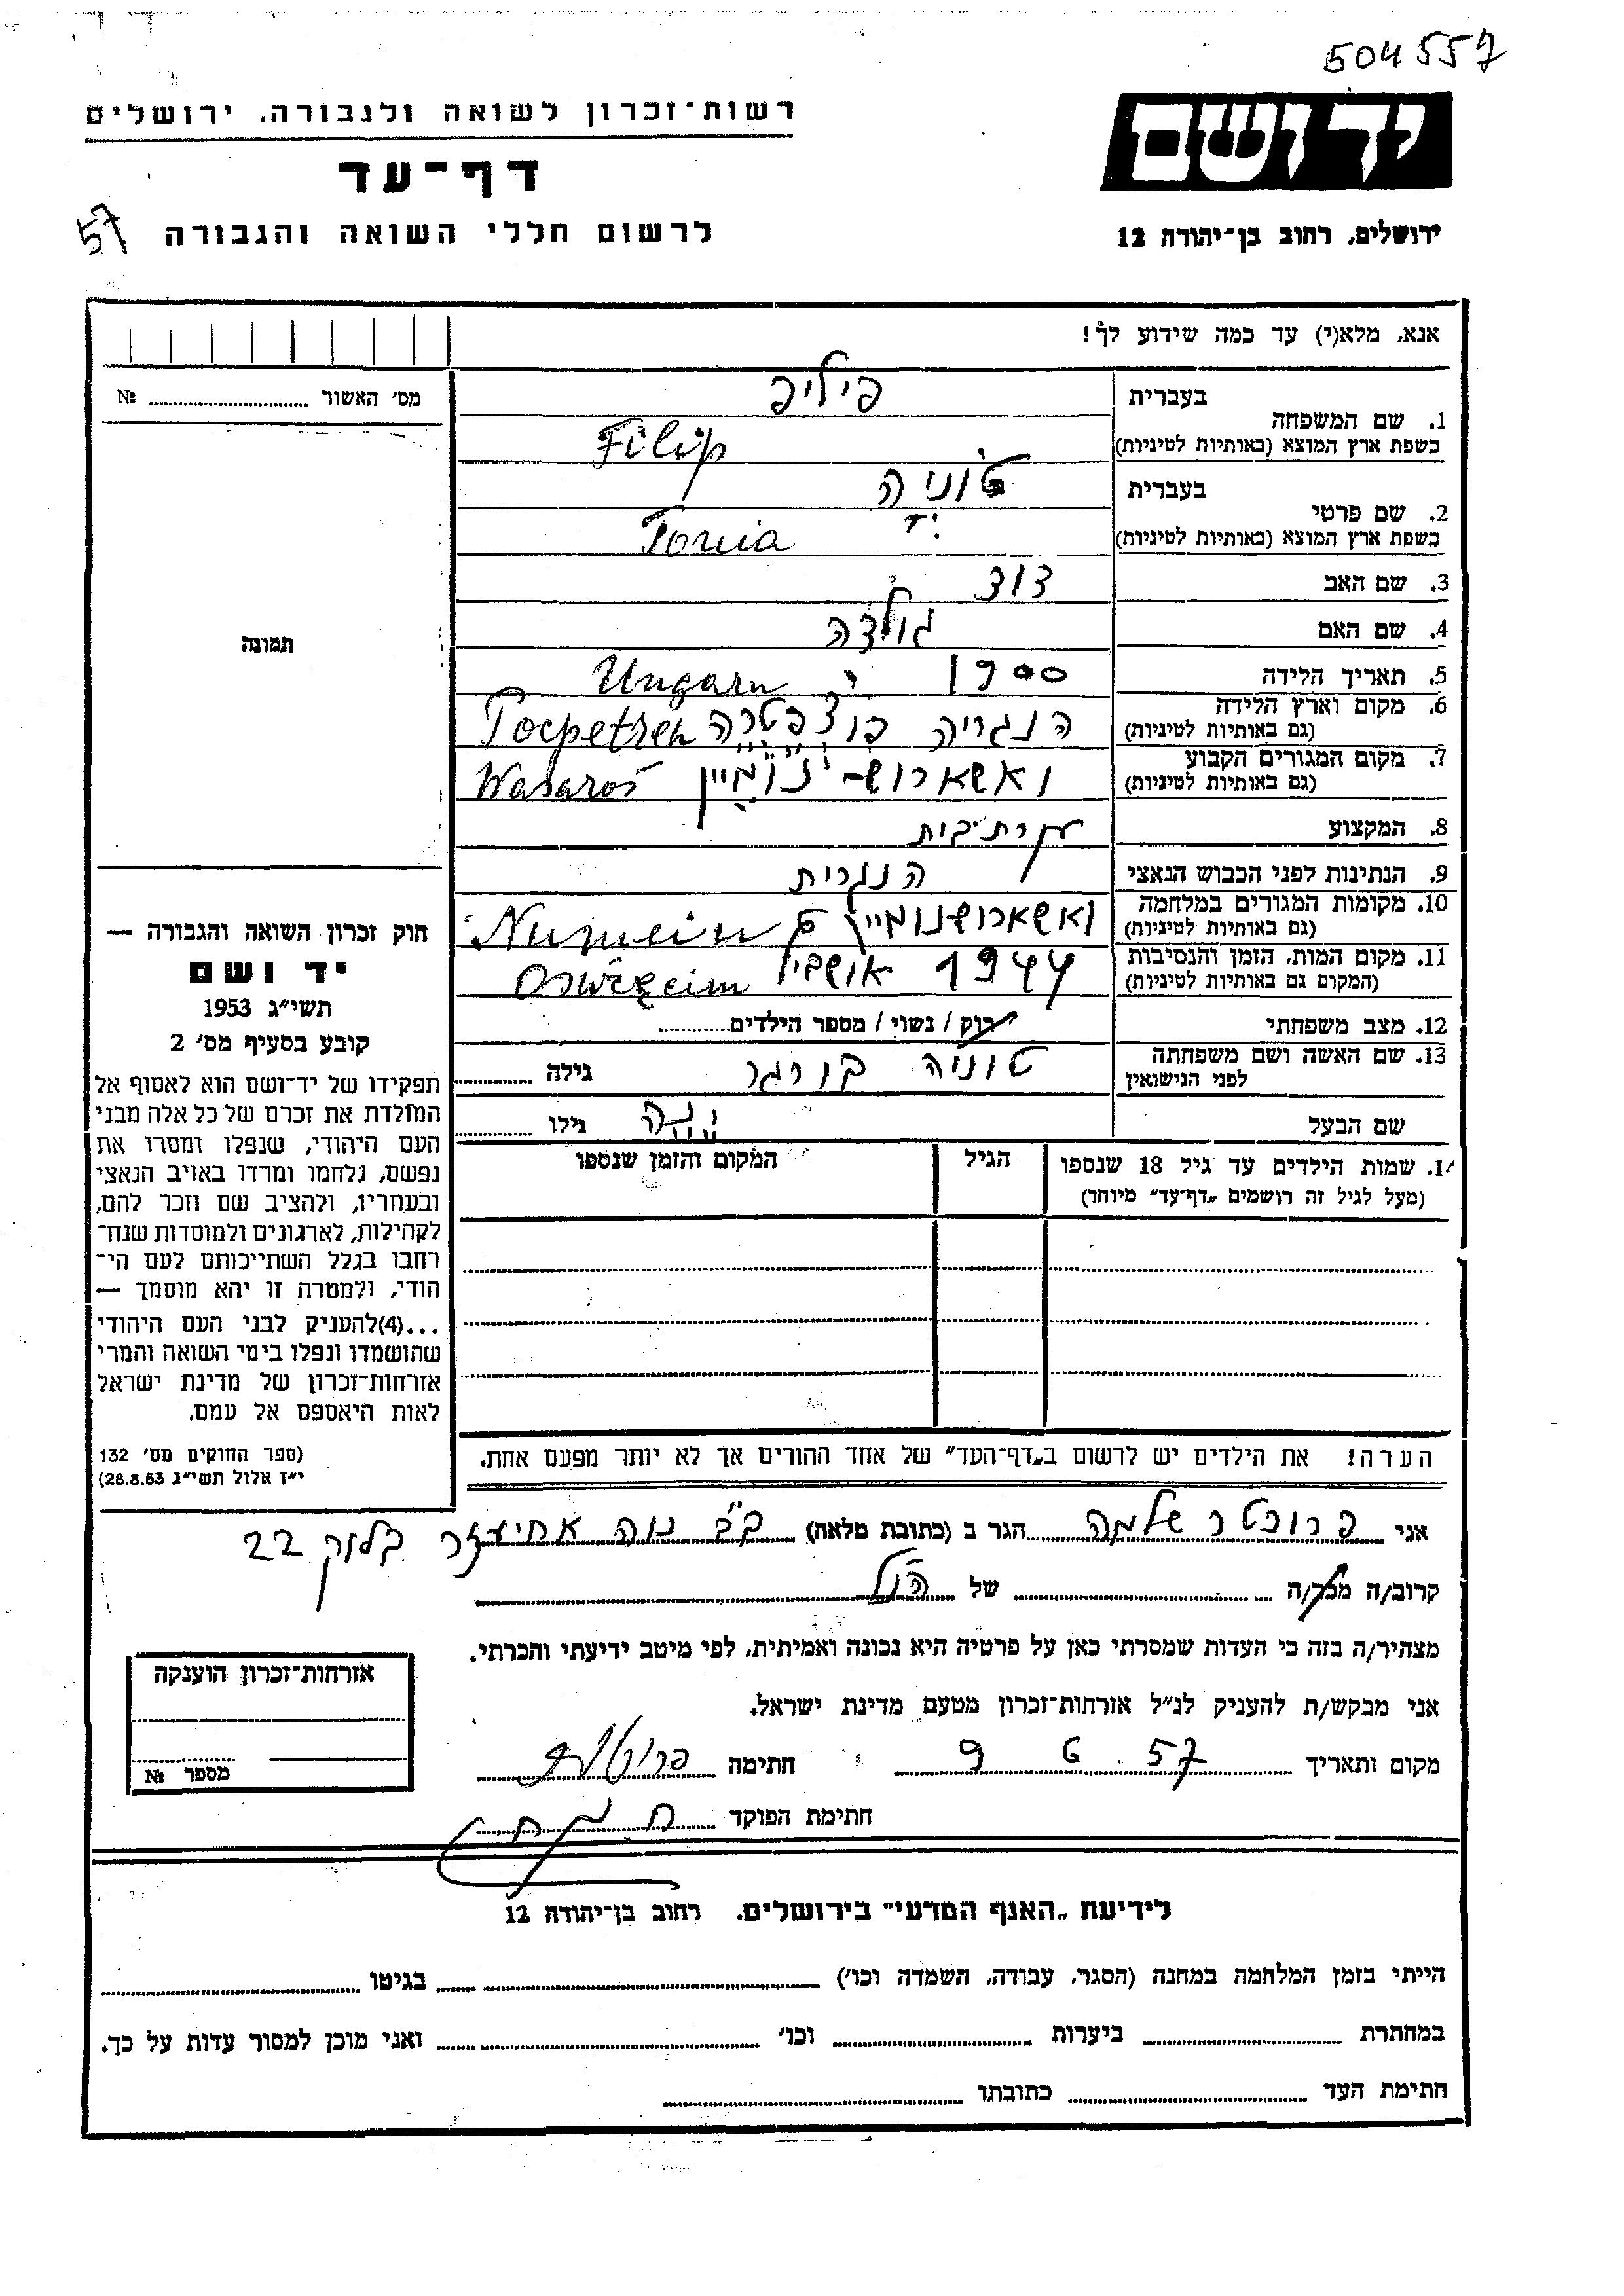 504557
יד ושם
רשות־זכרון לשואה ולגבורה, ירושלים
דף־עד
ירושלים, רחוב בן־יהודה 12
לרשום חללי השואה והגבורה
57
אנא, מלא(י) עד כמה שידוע לך!
מס׳ האשור ........ №
תמונה
בעברית פיליפ
1. שם המשפחה
בשפת ארץ המוצא (באותיות לטיניות) Filip
בעברית טוניה
2. שם פרטי
בשפת ארץ המוצא (באותיות לטיניות) Tonia
3. שם האב דוד
4. שם האם גולדה
5. תאריך הלידה 1900 Ungarn
6. מקום וארץ הלידה
(גם באותיות לטיניות) הנגריה
7. מקום המגורים הקבוע
(גם באותיות לטיניות) Wasaros
8. המקצוע עקרת־בית
9. הנתינות לפני הכבוש הנאצי הנגרית
10. מקומות המגורים במלחמה
(גם באותיות לטיניות)
11. מקום המות, הזמן והנסיבות
(המקום גם באותיות לטיניות) 1944
12. מצב משפחתי רוק / נשוי / מספר הילדים........
13. שם האשה ושם משפחתה
לפני הנישואין טוניה גילה ........
שם הבעל גילו ........
14. שמות הילדים עד גיל 18 שנספו
(מעל לגיל זה רושמים „דף־עד״ מיוחד)
הגיל
המקום והזמן שנספו
חוק זכרון השואה והגבורה —
יד ושם
תשי״ג 1953
קובע בסעיף מס׳ 2
תפקידו של יד־ושם הוא לאסוף אל
המולדת את זכרם של כל אלה מבני
העם היהודי, שנפלו ומסרו את
נפשם, נלחמו ומרדו באויב הנאצי
ובעוזריו, ולהציב שם וזכר להם,
לקהילות, לארגונים ולמוסדות שנח־
רחבו בגלל השתייכותם לעם הי־
הודי, ולמטרה זו יהא מוסמך —
...(4)להעניק לבני העם היהודי
שהושמדו ונפלו בימי השואה והמרי
אזרחות־זכרון של מדינת ישראל
לאות היאספם אל עמם.
(ספר החוקים מס׳ 132
י״ז אלול תשי״ג 28.8.53)
הערה! את הילדים יש לרשום ב„דף־העד״ של אחד ההורים אך לא יותר מפעם אחת.
אני פרוכטר שלמה הגר ב (כתובת מלאה) ב״ב נוה אחיעזר בלוק 22
קרוב/ה מכר/ה ........ של הנ״ל
מצהיר/ה בזה כי העדות שמסרתי כאן על פרטיה היא נכונה ואמיתית, לפי מיטב ידיעתי והכרתי.
אני מבקש/ת להעניק לנ״ל אזרחות־זכרון מטעם מדינת ישראל.
מקום ותאריך 57 6 9 חתימה
חתימת הפוקד
אזרחות־זכרון הוענקה
מספר №
לידיעת „האגף המדעי״ בירושלים, רחוב בן־יהודה 12
הייתי בזמן המלחמה במחנה (הסגר, עבודה, השמדה וכו׳) ........ בגיטו ........
במחתרת ........ ביערות ........ וכו׳ ........ ואני מוכן למסור עדות על כך.
חתימת העד ........ כתובתו ........